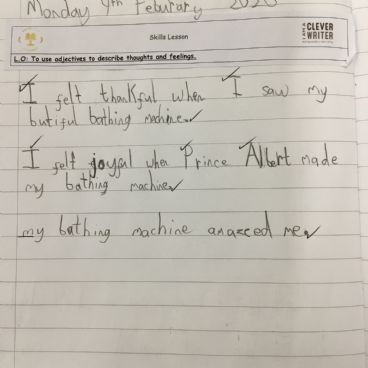 Monday 9th Feburary 2026
Skills Lesson
I AM A CLEVER WRITER
L.O: To use adjectives to describe thoughts and feelings.
I felt thankful when I saw my
butiful bathing machine.
I felt joyful when Prince Albert made
my bathing machine.
my bathing machine amazced me.